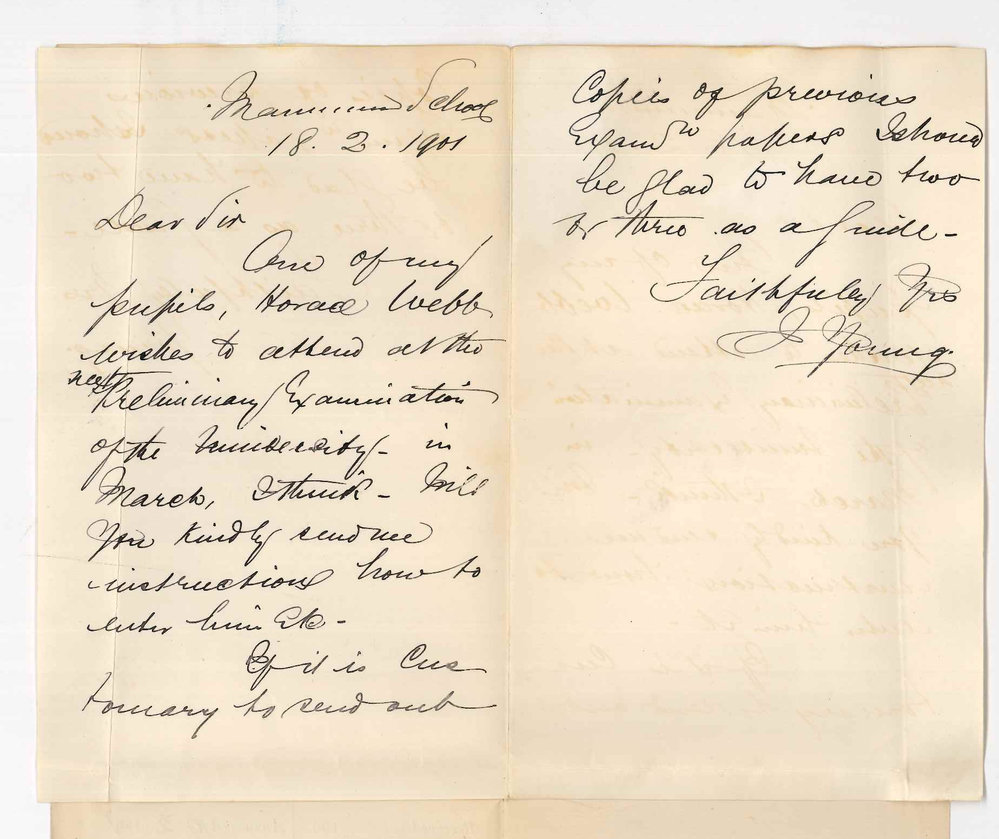 Mannum School
18. 2. 1901
Dear Sir
One of my
pupils, Horace Webb
wishes to attend at the
next Preliminary Examination
of the University - in
March, I think - Will
you kindly send me
instructions how to
enter him Etc -
If it is Cus
tomary to send out
Copies of previous
Examn papers I should
be glad to have two
or three as a guide -
Faithfully Yrs
J Young.